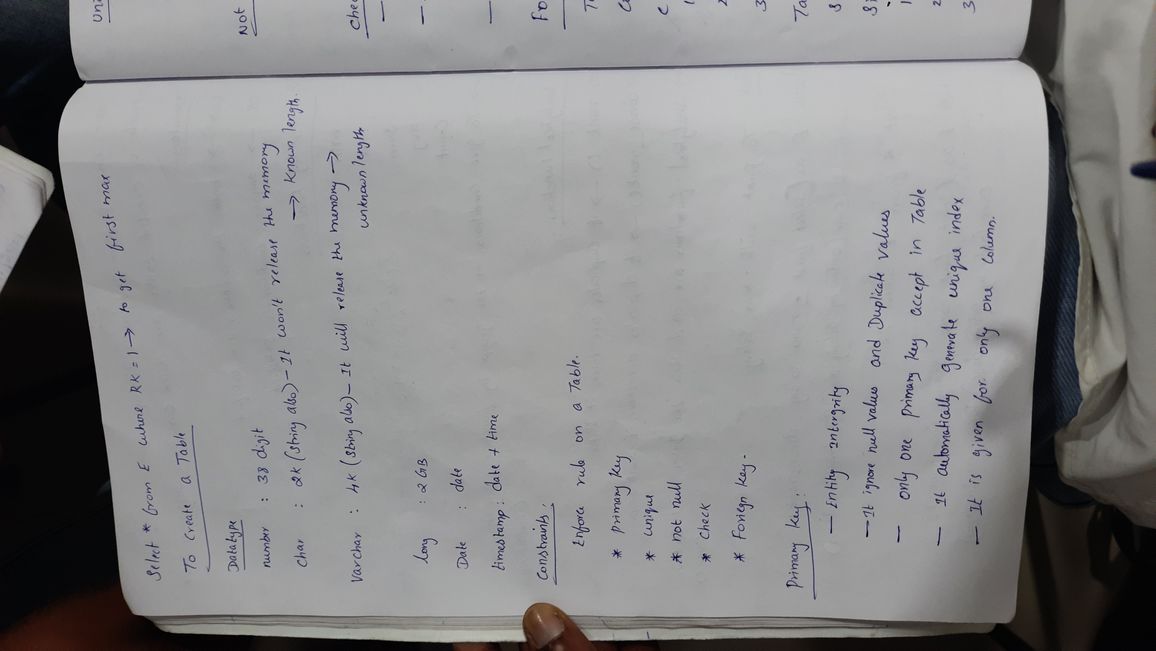 Select * from E where RK = 1 → to get first max
To Create a Table
Datatype
number : 38 digit
char : 2K (string also) - It won't release the memory
→ known length.
Varchar : 4K (string also) - It will release the memory →
unknown length
long : 2 GB
Date : date
timestamp : date + time
Constraints.
Enforce rule on a Table.
* primary key
* unique
* not null
* check
* Foriegn key.
Primary key:
- Entity intergrity
- It ignore null values and Duplicate values
- only one primary key accept in Table
- It automatically generate unique index
- It is given for only one column.
Uni
Not
Chec
Fo
T
C
1
2
3
Ta
S
Si
1
2
3